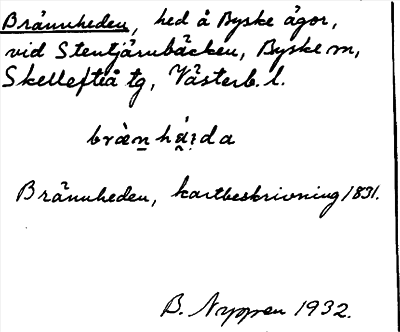 Brännheden, hed å Byske ägor,
vid Stentjärnbäcken, Byske sn,
Skellefteå tg, Västerb. l.
Brännheden, kartbeskrivning 1831.
B. Nyppen 1932.